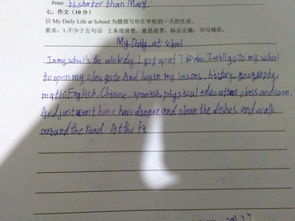 Peter is shorter than Mary.
七、作文(10分)
以 My Daily Life at School 为题描写你在学校的一天的生活。
要求:1.不少于五句话 2.条理清楚,意思连贯,标点正确,书写规范。
My Daily at school
In my school's the I get up at to my school
to open my class And began my lessons, history, geography,
math, English, Chinese, spanish, physical education class and soon.
And just went home have dinner and clean the dishes and walk
around the road. At the